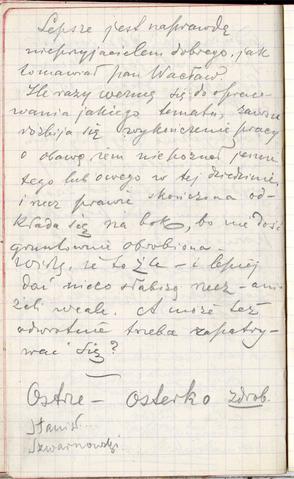 Lepsze jest naprawdę
nieprzyjacielem dobrego, jak
mawiał pan Wacław.
Ile razy wezmę się do opraco-
wania jakiegoś tematu, zawsze
rozbija się wykończenie pracy
o obawę, żem nie poznał jeszcze
tego lub owego w tej dziedzinie,
i rzecz prawie skończona od-
kłada się na bok, bo nie dość
gruntownie obrobiona.
Widzę, że to źle – i lepiej
dać nieco słabszą rzecz – ani-
żeli wcale. A może też
odwrotnie trzeba zapatry-
wać się?
Ostre – osterko zdrob.
Stanisł.
Szwarnowski